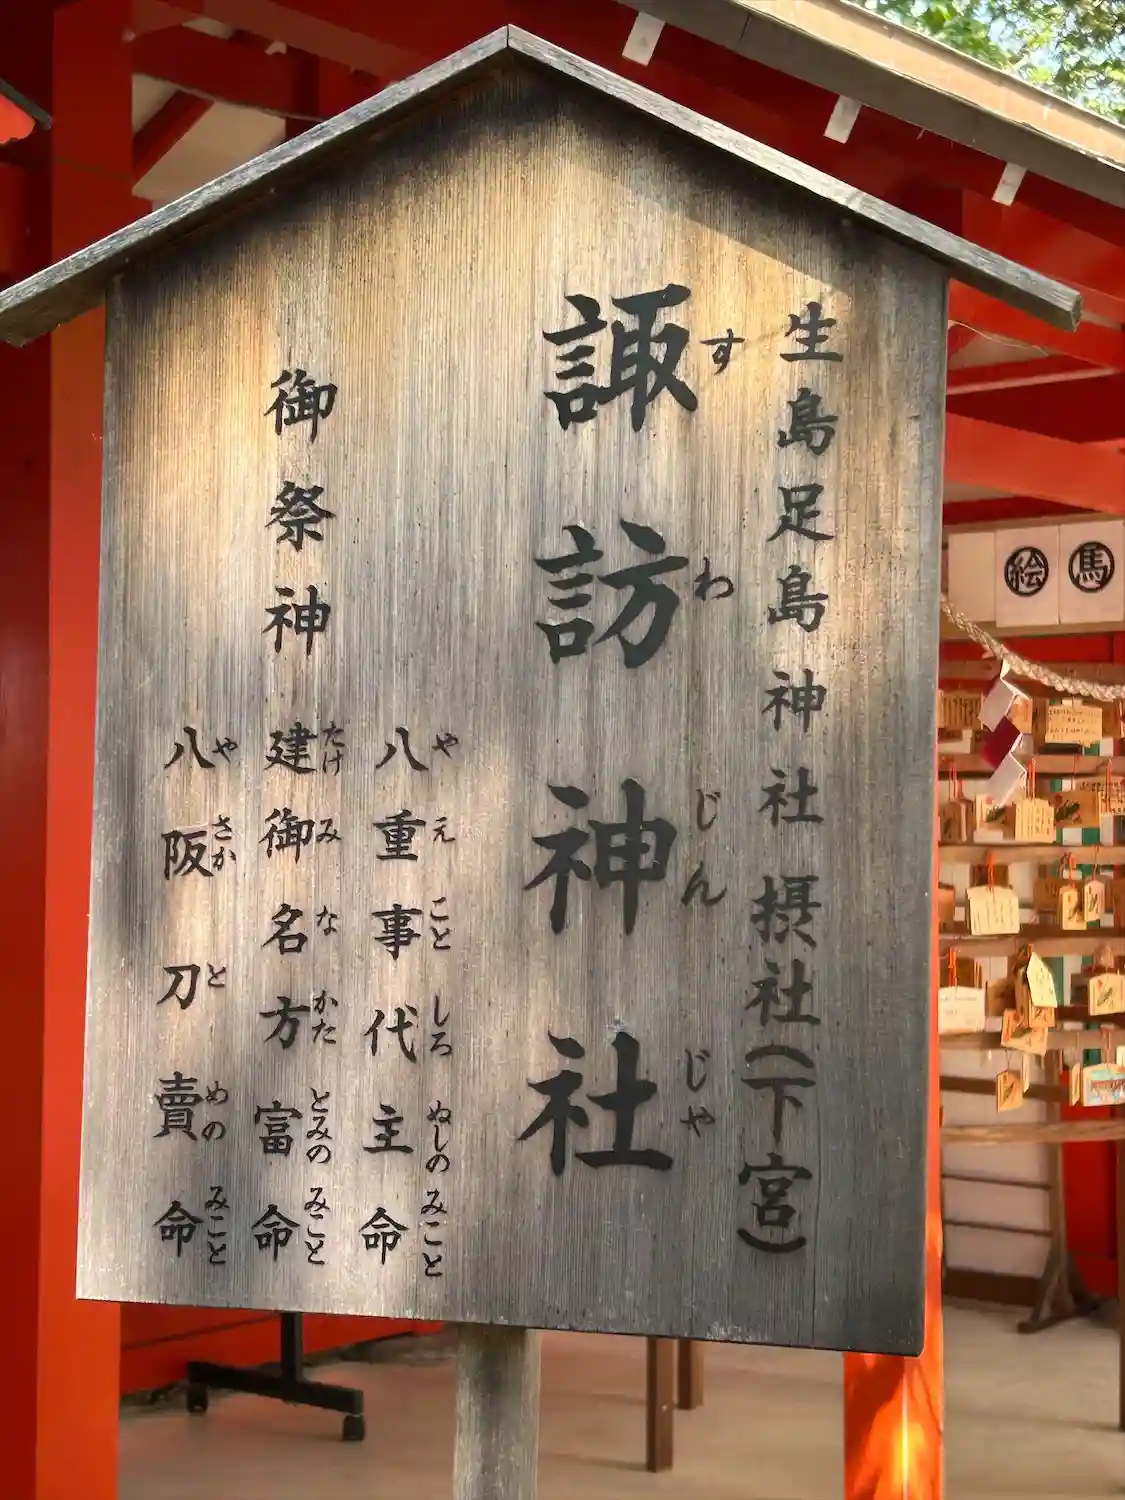 生島足島神社摂社(下宮)
諏訪神社
すわじんじゃ
八重事代主命
やえことしろぬしのみこと
御祭神 建御名方富命
たけみなかたとみのみこと
八阪刀賣命
やさかとめのみこと
絵馬